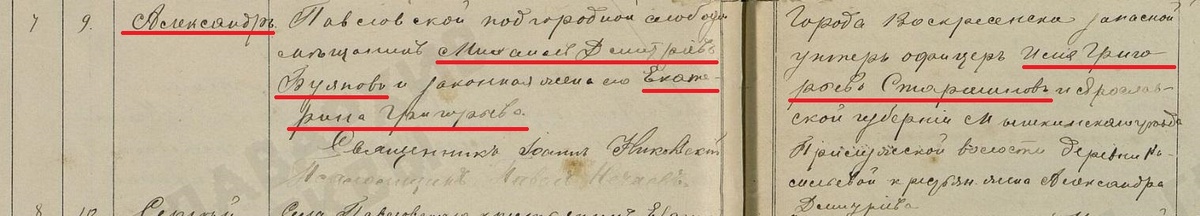 7 9. Александръ
Павловской подгородной слободы
мѣщанинъ Михаилъ Дмитріевъ
Буяновъ и законная жена его Екате-
рина Григорьева.
Священникъ Іоаннъ Никольскій
Псаломщикъ
Города Воскресенска запасной
унтеръ офицеръ Илья Григо-
рьевъ Старшиновъ и Ярослав-
ской губерніи Мышкинскаго уѣзда
волости деревни
крестьян. жена Александра
Дмитріева
8 10. Сергѣй
Села Павловскаго крестьянинъ Иван